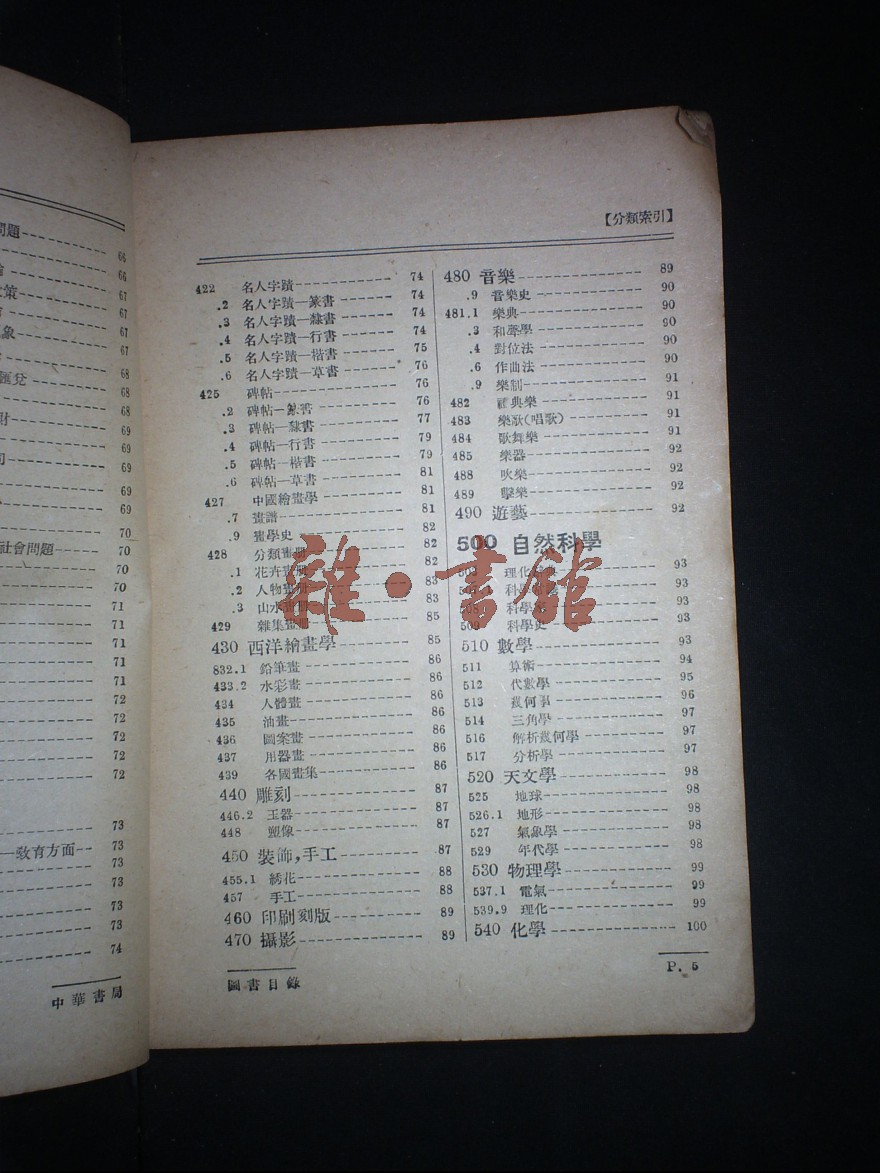 問題 66
66
策 67
67
象 67
67
匯兌 68
68
財 68
69
司 69
69
69
70
社會問題 70
70
70
71
71
71
71
71
72
72
72
72
72
73
—教育方面— 73
73
73
73
73
74
中華書局
【分類索引】
422 名人字蹟 74
.2 名人字蹟—篆書 74
.3 名人字蹟—隸書 74
.4 名人字蹟—行書 74
.5 名人字蹟—楷書 75
.6 名人字蹟—草書 76
425 碑帖 76
.2 碑帖—篆書 76
.3 碑帖—隸書 77
.4 碑帖—行書 79
.5 碑帖—楷書 79
.6 碑帖—草書 81
427 中國繪畫學 81
.7 畫譜 81
.9 畫學史 82
428 分類畫册 82
.1 花卉畫册 82
.2 人物畫册 83
.3 山水畫册 83
429 雜集畫册 85
430 西洋繪畫學 85
832.1 鉛筆畫 86
433.2 水彩畫 86
434 人體畫 86
435 油畫 86
436 圖案畫 86
437 用器畫 86
439 各國畫集 86
440 雕刻 87
446.2 玉器 87
448 塑像 87
450 裝飾,手工 87
455.1 綉花 88
457 手工 88
460 印刷刻版 89
470 攝影 89
480 音樂 89
.9 音樂史 90
481.1 樂典 90
.3 和聲學 90
.4 對位法 90
.6 作曲法 90
.9 樂制 91
482 禮典樂 91
483 樂歌(唱歌) 91
484 歌舞樂 91
485 樂器 92
488 吹樂 92
489 擊樂 92
490 遊藝 92
500 自然科學
理化 93
科學 93
科學 93
509 科學史 93
510 數學 93
511 算術 94
512 代數學 95
513 幾何學 96
514 三角學 97
516 解析幾何學 97
517 分析學 97
520 天文學 98
525 地球 98
526.1 地形 98
527 氣象學 98
529 年代學 98
530 物理學 99
537.1 電氣 99
539.9 理化 99
540 化學 100
圖書目錄
P. 5
雜·書館